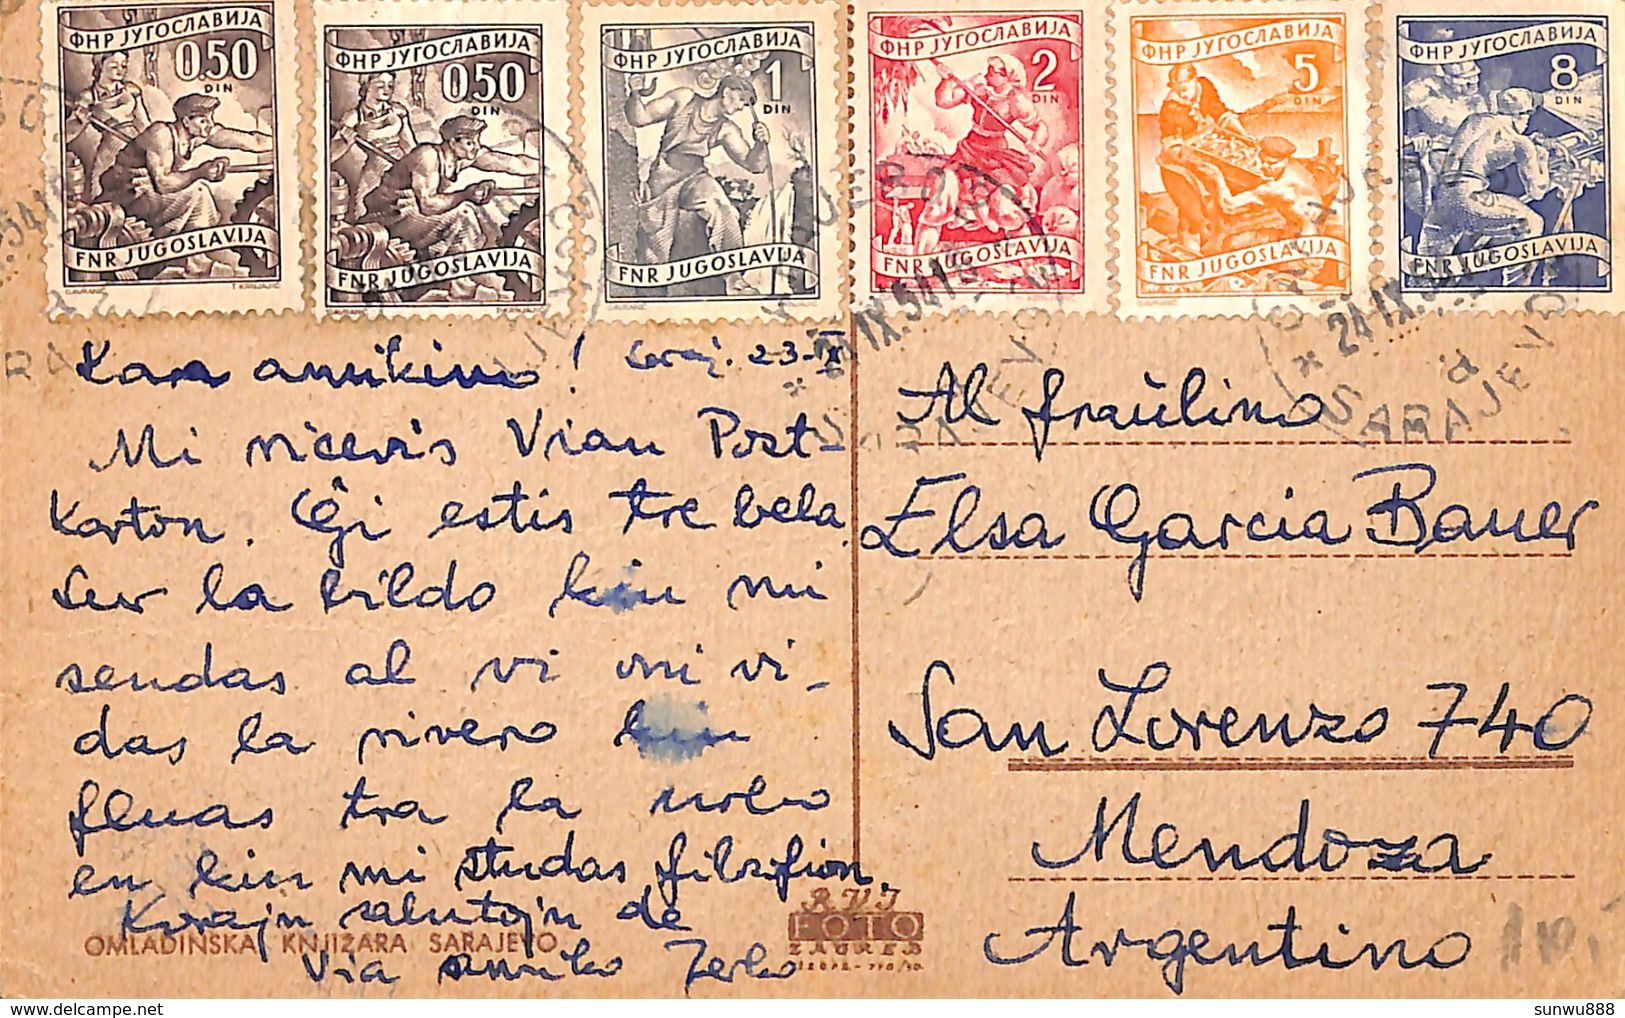 ФНР ЈУГОСЛАВИЈА
0.50
DIN
FNR JUGOSLAVIJA
ФНР ЈУГОСЛАВИЈА
0.50
DIN
FNR JUGOSLAVIJA
ФНР ЈУГОСЛАВИЈА
1
DIN
FNR JUGOSLAVIJA
ФНР ЈУГОСЛАВИЈА
2
DIN
FNR JUGOSLAVIJA
ФНР ЈУГОСЛАВИЈА
5
DIN
FNR JUGOSLAVIJA
ФНР ЈУГОСЛАВИЈА
8
DIN
FNR JUGOSLAVIJA
SARAJEVO
Kara amikino! 23-IX
Mi ricevis Vian Post-
Karton. Ĝi estis tre bela.
Sur la bildo kiu mi
sendas al vi oni vi-
das la rivero kiu
fluas tra la urbo
en kiu mi studas filozofion
Korajn salutojn de
Via amiko Zerko
OMLADINSKA KNJIŽARA SARAJEVO
RVJ
FOTO
ZAGREB
Al fraŭlino
Elsa Garcia Bauer
San Lorenzo 740
Mendoza
Argentino
sunwu888